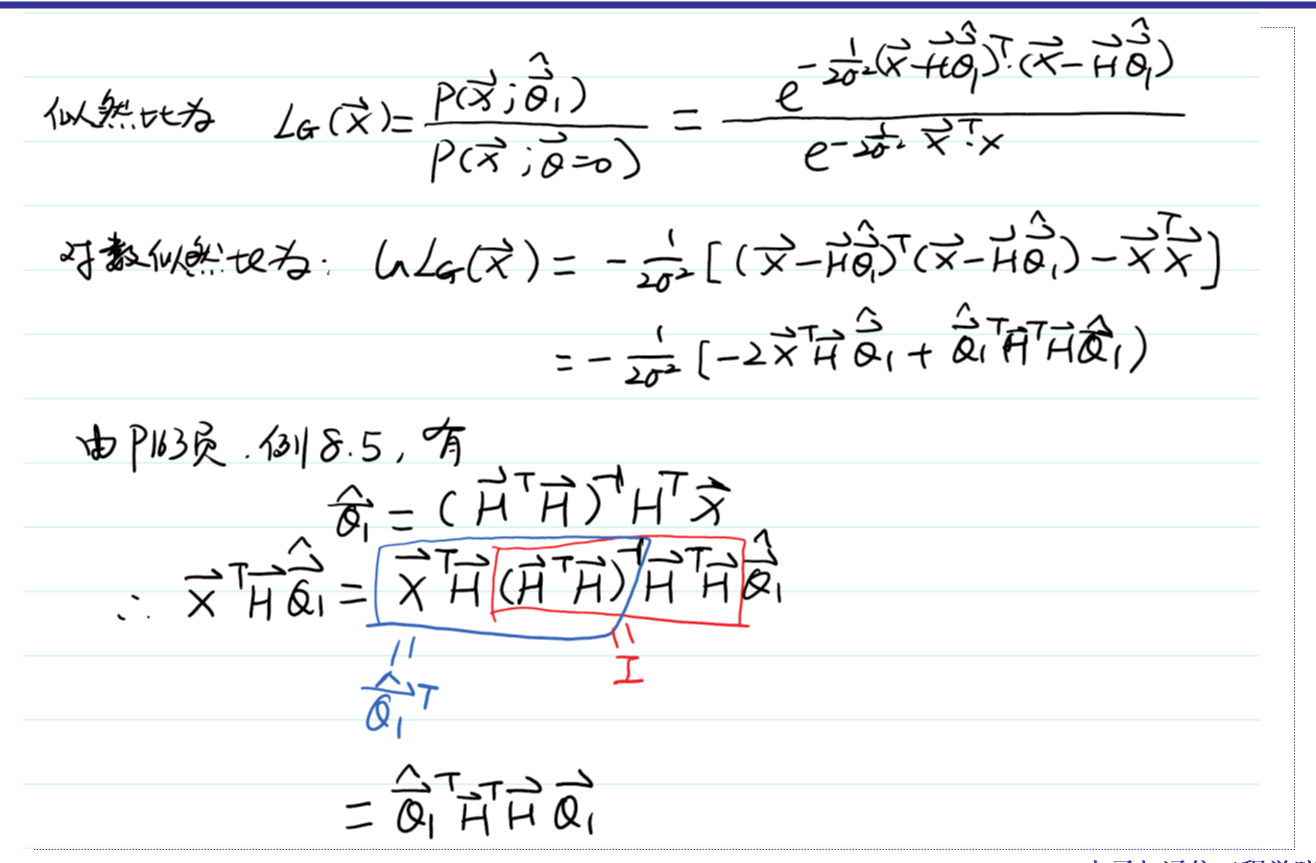 似然比为 L_G(x⃗) = P(x⃗; θ̂⃗₁) / P(x⃗; θ⃗=0) = e^{-1/(2σ²)(x⃗-H⃗θ̂⃗₁)ᵀ·(x⃗-H⃗θ̂⃗₁)} / e^{-1/(2σ²) x⃗ᵀ·x}
对数似然比为: ln L_G(x⃗) = -1/(2σ²) [(x⃗-H⃗θ̂⃗₁)ᵀ(x⃗-H⃗θ̂⃗₁) - x⃗ᵀx⃗]
= -1/(2σ²) [-2x⃗ᵀH⃗θ̂⃗₁ + θ̂⃗₁ᵀH⃗ᵀH⃗θ̂⃗₁)
由P163页.例8.5,有
θ̂⃗₁ = (H⃗ᵀH⃗)⁻¹Hᵀx⃗
∴ x⃗ᵀH⃗θ̂⃗₁ = x⃗ᵀH⃗(H⃗ᵀH⃗)⁻¹H⃗ᵀH⃗θ̂⃗₁
= I
= θ̂⃗₁ᵀ
= θ̂⃗₁ᵀH⃗ᵀH⃗θ⃗₁